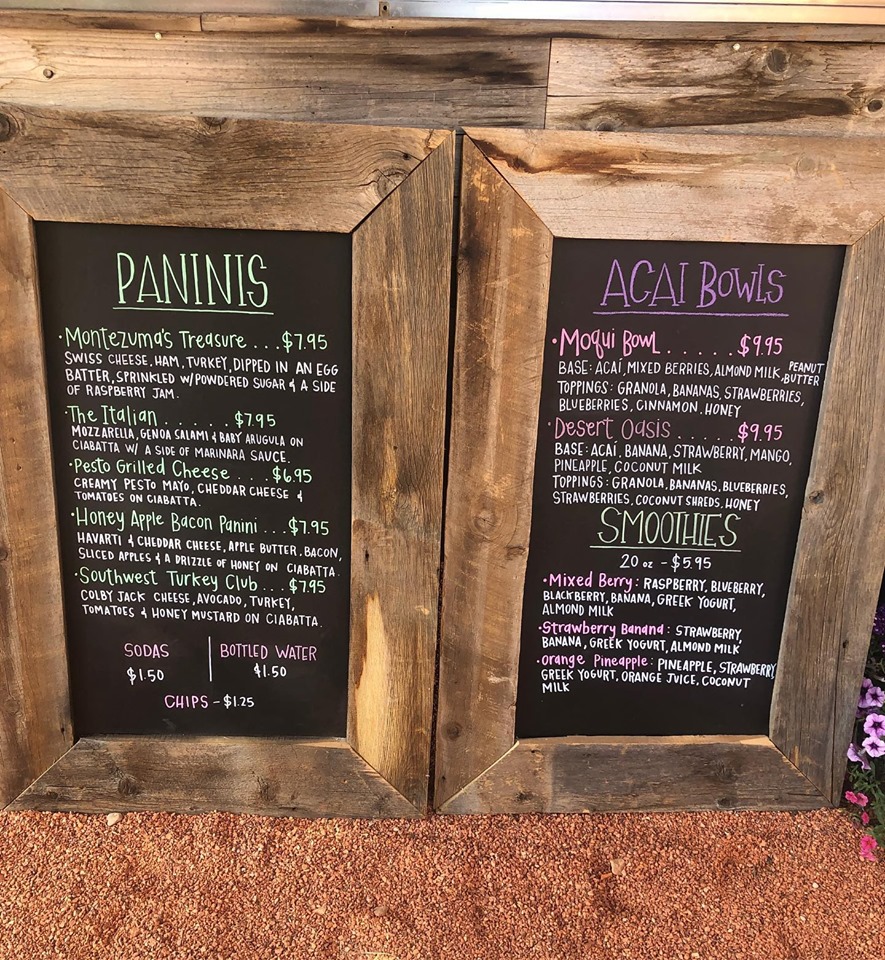 PANINIS
·Montezuma's Treasure...$7.95
SWISS CHEESE, HAM, TURKEY, DIPPED IN AN EGG
BATTER, SPRINKLED W/POWDERED SUGAR & A SIDE
OF RASPBERRY JAM.
·The Italian......$7.95
MOZZARELLA, GENOA SALAMI & BABY ARUGULA ON
CIABATTA W/ A SIDE OF MARINARA SAUCE.
·Pesto Grilled Cheese...$6.95
CREAMY PESTO MAYO, CHEDDAR CHEESE &
TOMATOES ON CIABATTA.
·Honey Apple Bacon Panini...$7.95
HAVARTI & CHEDDAR CHEESE, APPLE BUTTER, BACON,
SLICED APPLES & A DRIZZLE OF HONEY ON CIABATTA.
·Southwest Turkey Club...$7.95
COLBY JACK CHEESE, AVOCADO, TURKEY,
TOMATOES & HONEY MUSTARD ON CIABATTA.
SODAS
$1.50
BOTTLED WATER
$1.50
CHIPS - $1.25
ACAI BOWLS
·Moqui Bowl......$9.95
BASE: ACAÍ, MIXED BERRIES, ALMOND MILK, PEANUT BUTTER
TOPPINGS: GRANOLA, BANANAS, STRAWBERRIES,
BLUEBERRIES, CINNAMON, HONEY
·Desert Oasis......$9.95
BASE: ACAÍ, BANANA, STRAWBERRY, MANGO,
PINEAPPLE, COCONUT MILK
TOPPINGS: GRANOLA, BANANAS, BLUEBERRIES,
STRAWBERRIES, COCONUT SHREDS, HONEY
SMOOTHIES
20 oz - $5.95
·Mixed Berry: RASPBERRY, BLUEBERRY,
BLACKBERRY, BANANA, GREEK YOGURT,
ALMOND MILK
·Strawberry Banana: STRAWBERRY,
BANANA, GREEK YOGURT, ALMOND MILK
·Orange Pineapple: PINEAPPLE, STRAWBERRY
GREEK YOGURT, ORANGE JUICE, COCONUT
MILK